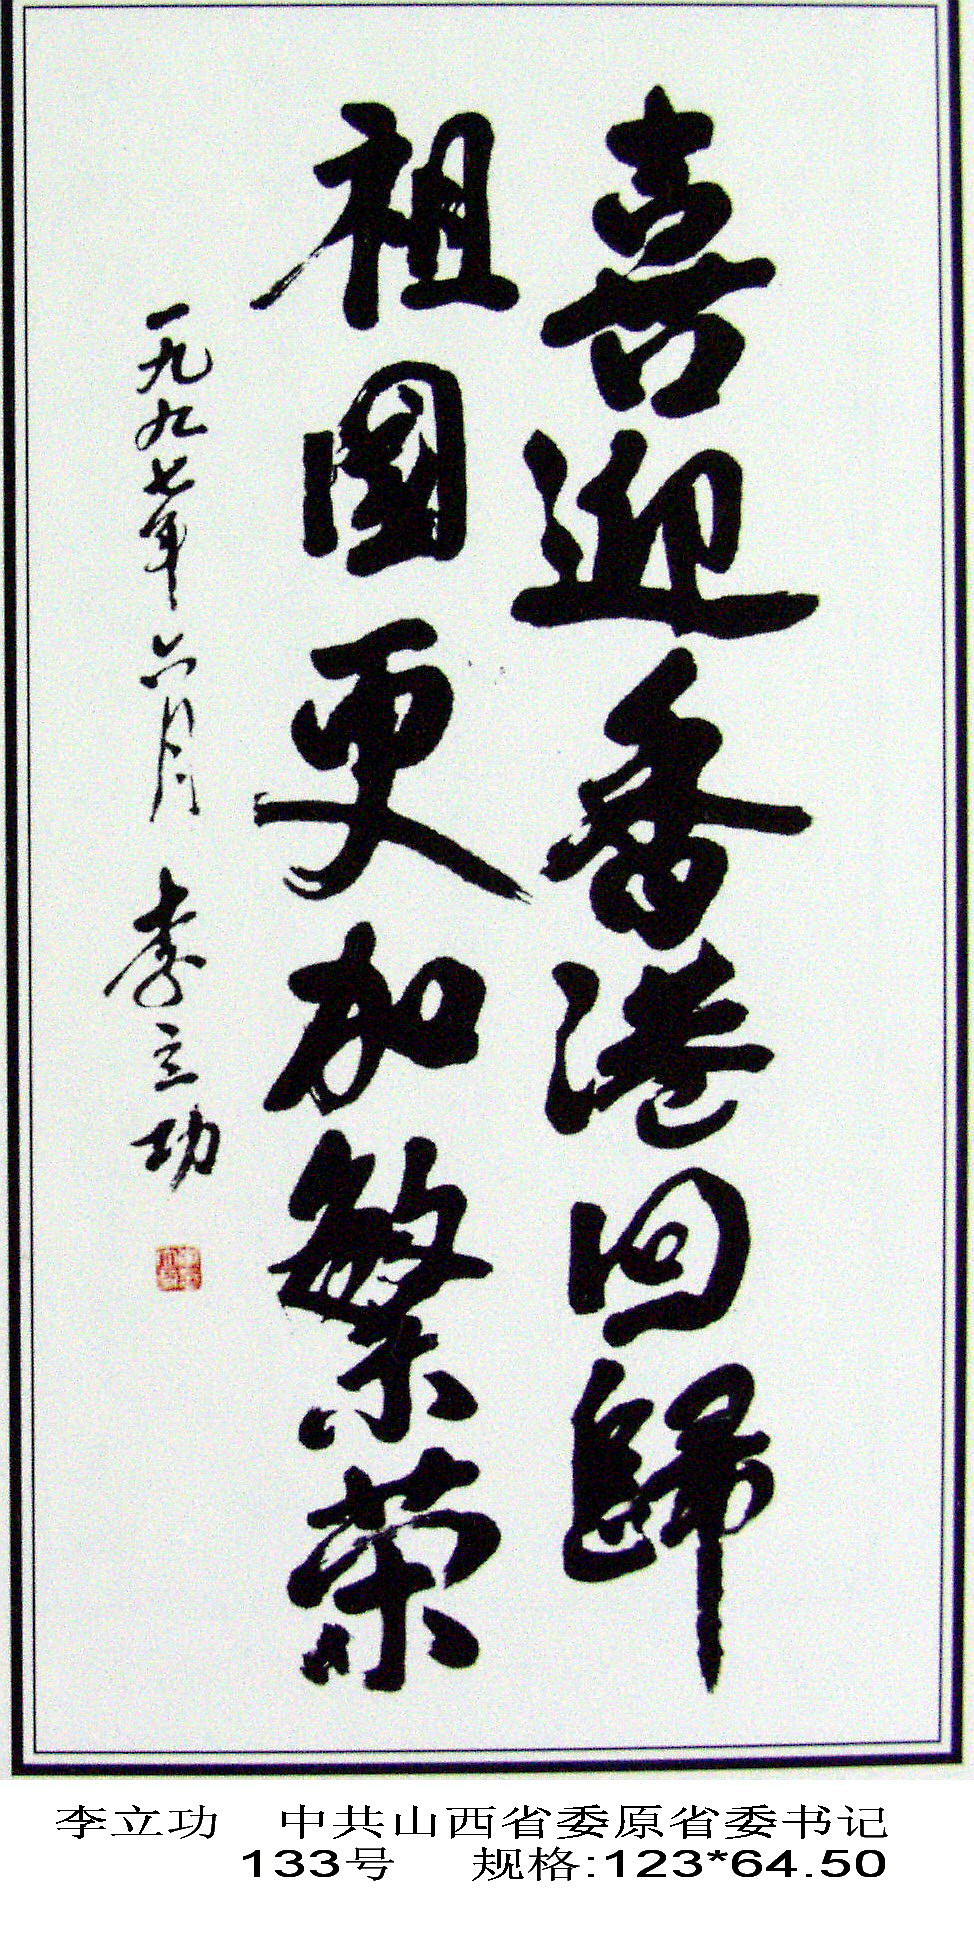 喜迎香港回歸
祖國更加繁荣
一九九七年六月 李立功
李立功 中共山西省委原省委书记
133号 规格:123*64.50